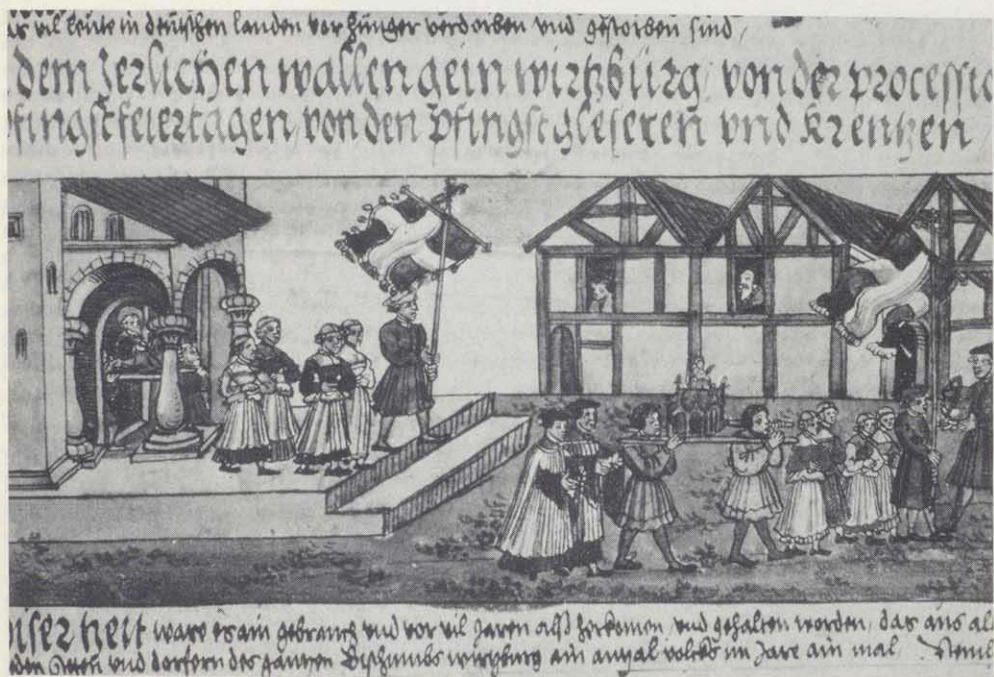 vil leute in deutschen landen vor hunger verdorben vnd gestorben sind,
dem Jerlichen wallen gein wirtzburg, von der processio
pfingstfeiertagen, von den pfingstgleseren vnd Krentzen
iser Zeit ware es ain gebrauch vnd vor vil Jaren also herkomen, vnd gehalten worden, das aus al
den Steten vnd dorfern des gantzen Bischtumbs wirtzburg ain antzal volcks im Jare ain mal,